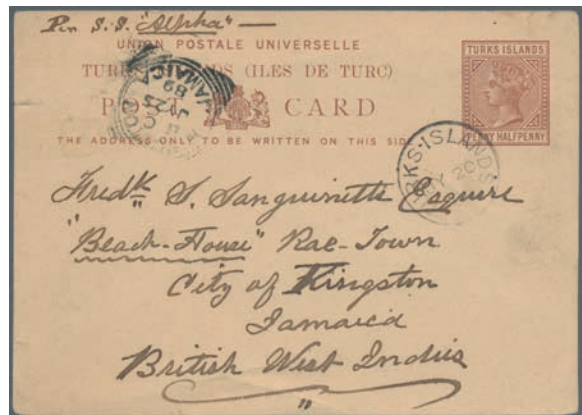 Per S.S. "Alpha" —
UNION POSTALE UNIVERSELLE
TURKS ISLANDS (ILES DE TURC)
POST CARD
THE ADDRESS ONLY TO BE WRITTEN ON THIS SIDE
TURKS ISLANDS
PENNY HALFPENNY
JAMAICA
89
TURKS-ISLANDS
MY 20
Fredk S. Sanguinetti Esquire
"Beach-House" Rae-Town
City of Kingston
Jamaica
British West Indies